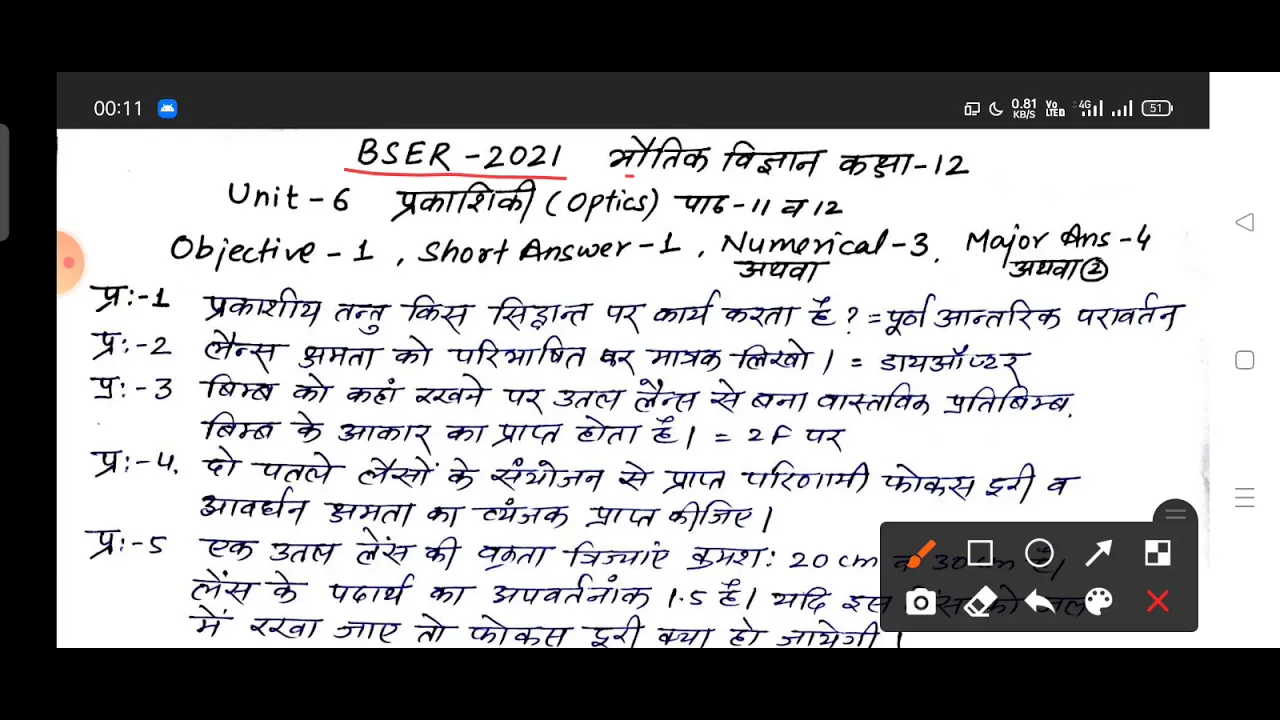 00:11 0.81 KB/S Vo LTED 4G 51
BSER - 2021 भौतिक विज्ञान कक्षा-12
Unit - 6 प्रकाशिकी (Optics) पाठ-11 व 12
Objective - 1 , Short Answer - 1 , Numerical - 3 , Major Ans - 4
अथवा अथवा ②
प्र:-1 प्रकाशीय तन्तु किस सिद्धान्त पर कार्य करता है ? = पूर्ण आन्तरिक परावर्तन
प्र:-2 लैन्स क्षमता को परिभाषित कर मात्रक लिखो । = डायऑप्टर
प्र:-3 बिम्ब को कहां रखने पर उतल लैन्स से बना वास्तविक प्रतिबिम्ब,
बिम्ब के आकार का प्राप्त होता है । = 2F पर
प्र:-4. दो पतले लैसों के संयोजन से प्राप्त परिणामी फोकस दूरी व
आवर्धन क्षमता का व्यंजक प्राप्त कीजिए ।
प्र:-5 एक उतल लेंस की वक्रता त्रिज्याएं क्रमश: 20 cm व 30 cm है ।
लेंस के पदार्थ का अपवर्तनांक 1.5 है । यदि इस
में रखा जाए तो फोकस दूरी क्या हो जायेगी ।